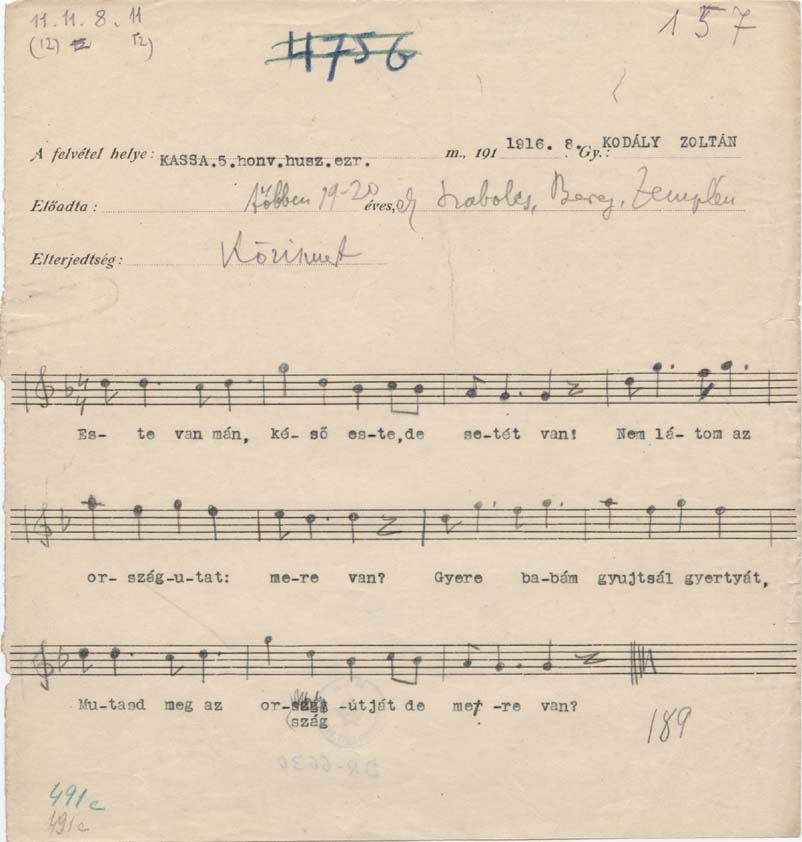 11. 11. 8. 11
(12) 12)
157
4756
A felvétel helye: KASSA.5.honv.husz.ezr. m., 191 1916. 8. Gy.: KODÁLY ZOLTÁN
Előadta: többen 19-20 éves, Szabolcs, Bereg, Zemplén
Elterjedtség: Közismert
Es- te van mán, ké- ső es-te,de se-tét van! Nem lá- tom az
or- szág-u-tat: me-re van? Gyere ba-bám gyujtsál gyertyát,
Mu-tasd meg az or- -útját de mer -re van?
(szág
189
DR-6630
491c
491c